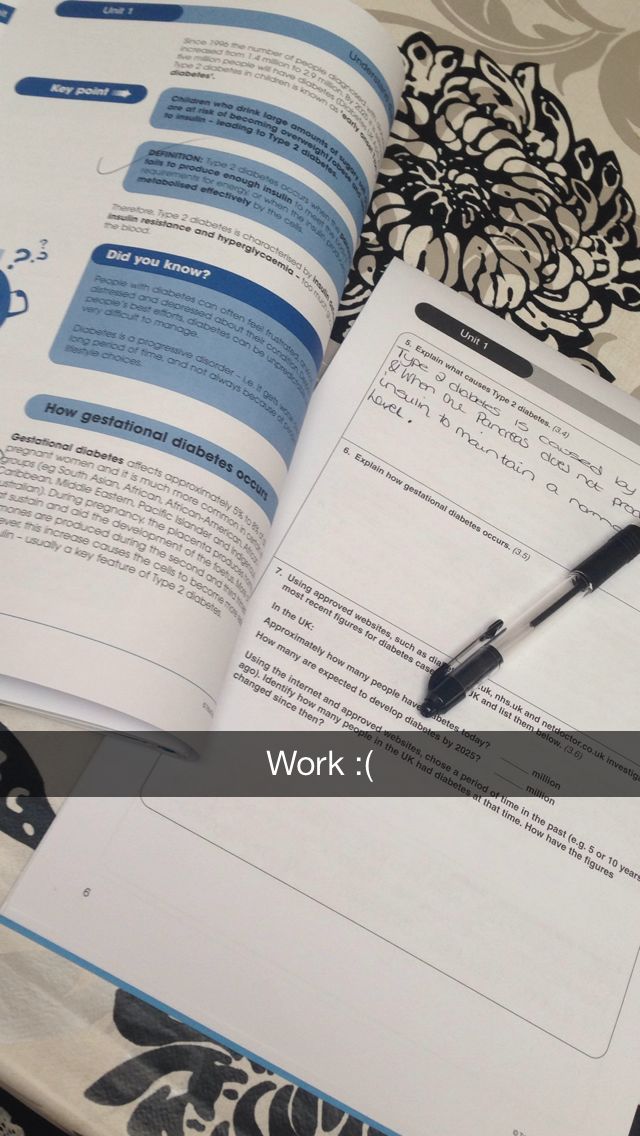 Unit 1
Understand
Since 1996 the number of people diagnosed
increased from 1.4 million to 2.9 million. By 2025
five million people will have diabetes
Type 2 diabetes in children is known as 'early onset
diabetes'.
Key point
Children who drink large amounts of sugary
are at risk of becoming overweight/obese and
to insulin – leading to Type 2 diabetes.
DEFINITION: Type 2 diabetes occurs when the
fails to produce enough insulin to meet the
requirements for energy, or when the insulin
metabolised effectively by the cells.
Therefore, Type 2 diabetes is characterised by insulin
insulin resistance and hyperglycaemia – too much
the blood.
Did you know?
People with diabetes can often feel frustrated,
distressed and depressed about their condition.
people's best efforts, diabetes can be
very difficult to manage.
Diabetes is a progressive disorder – i.e. it gets
long period of time, and not always because of
lifestyle choices.
How gestational diabetes occurs
Gestational diabetes affects approximately 5%
pregnant women and it is much more common in certain
groups (eg South Asian, African, African-American,
Middle Eastern, Pacific Islander and
During pregnancy, the placenta produces
sustain and aid the development of the foetus.
are produced during the second and third
this increase causes the cells to become more
– usually a key feature of Type 2 diabetes.
Unit 1
5. Explain what causes Type 2 diabetes. (3.4)
Type 2 diabetes is caused by
& when the Pancreas does not
insulin to maintain a
level.
6. Explain how gestational diabetes occurs. (3.5)
7. Using approved websites, such as
.uk, nhs.uk and netdoctor.co.uk
most recent figures for diabetes
UK and list them below. (3.6)
In the UK:
Approximately how many people have diabetes today? million
How many are expected to develop diabetes by 2025? million
Using the internet and approved websites, chose a period of time in the past (e.g. 5 or 10 years
ago). Identify how many people in the UK had diabetes at that time. How have the figures
changed since then?
Work :(
6